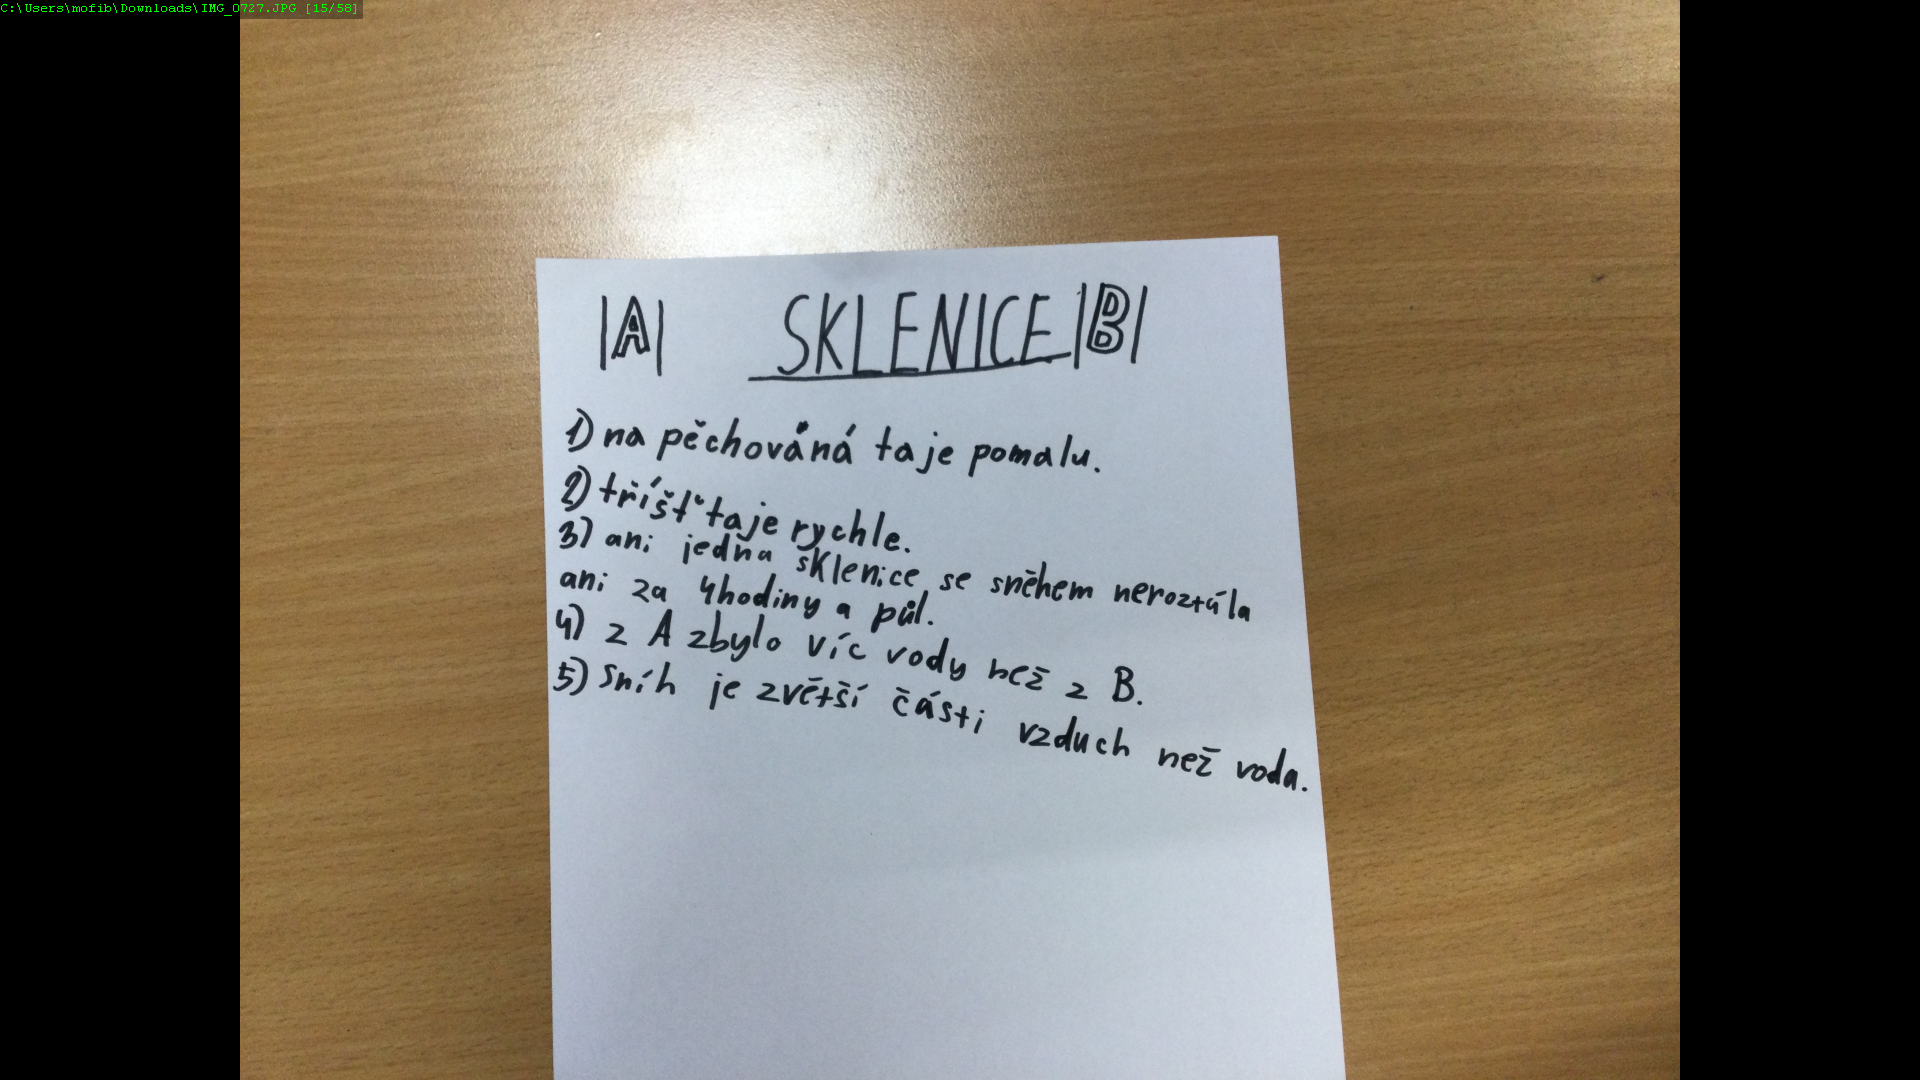 C:\Users\mofib\Downloads\IMG_0727.JPG [15/58]
|A| SKLENICE |B|
1) na pěchováná taje pomalu.
2) tříšť taje rychle.
3) ani jedna sklenice se sněhem neroztála
ani za 4hodiny a půl.
4) z A zbylo víc vody než z B.
5) Sníh je zvětší části vzduch než voda.